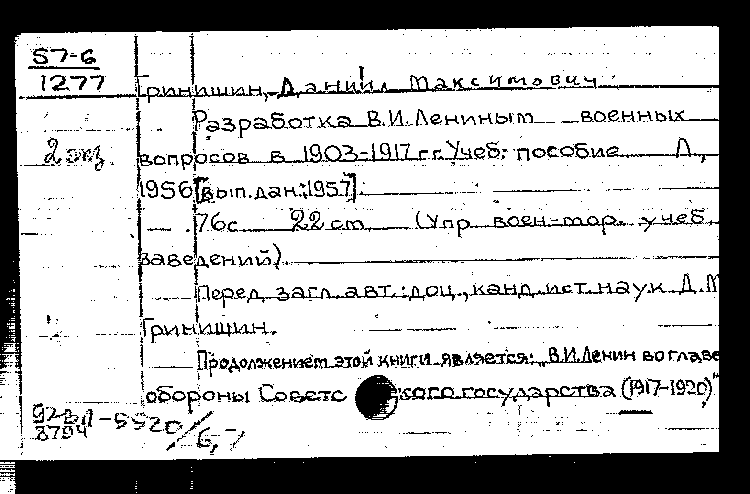 57-6
1277
Гринишин, Даниил Максимович
Разработка В.И.Лениным военных
2 экз.
вопросов в 1903-1917 г.г. Учеб. пособие Л.,
1956 [вып.дан.:1957].
76с 22 см (Упр. воен-мор. учеб.
заведений).
Перед загл. авт.: доц., канд. ист. наук Д.М
Гринишин.
Продолжением этой книги является: „В.И.Ленин во главе
обороны Советского государства (1917-1920)"
8794